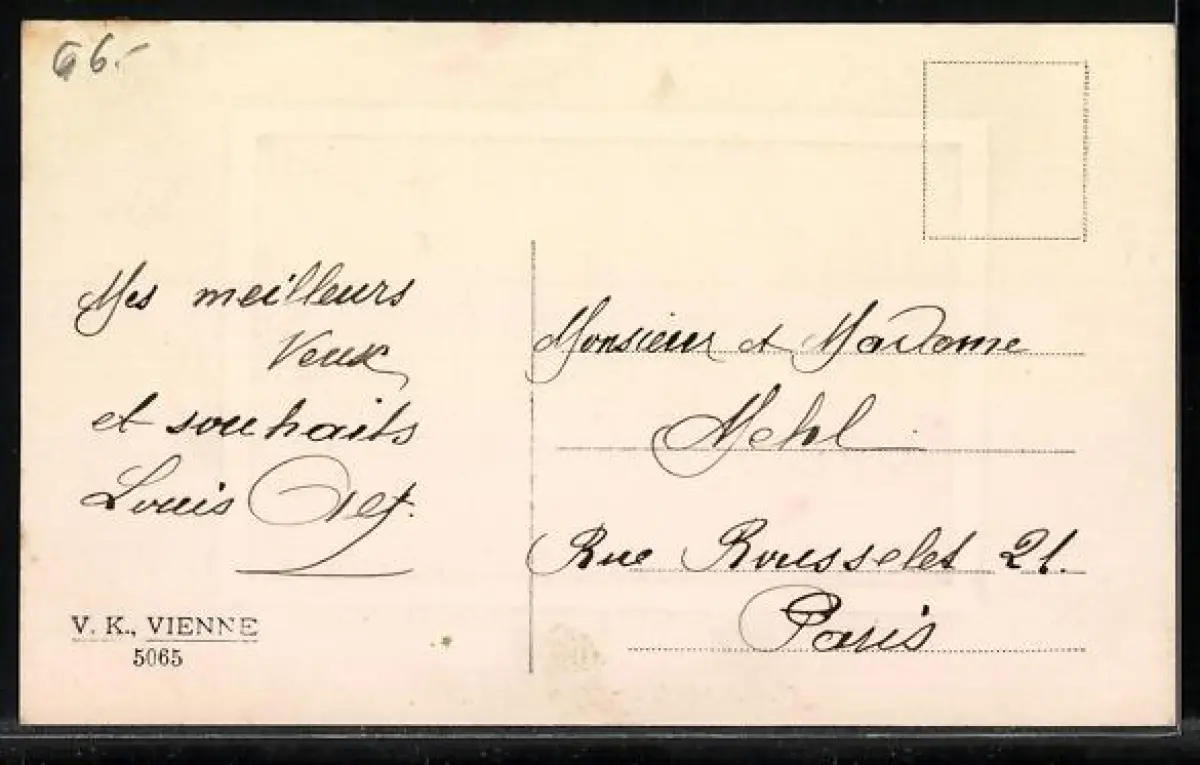 66.-
Mes meilleurs
Veux
et souhaits
Louis
Monsieur et Madame
Mehl.
Rue Rousselet 21.
Paris
V. K., VIENNE
5065